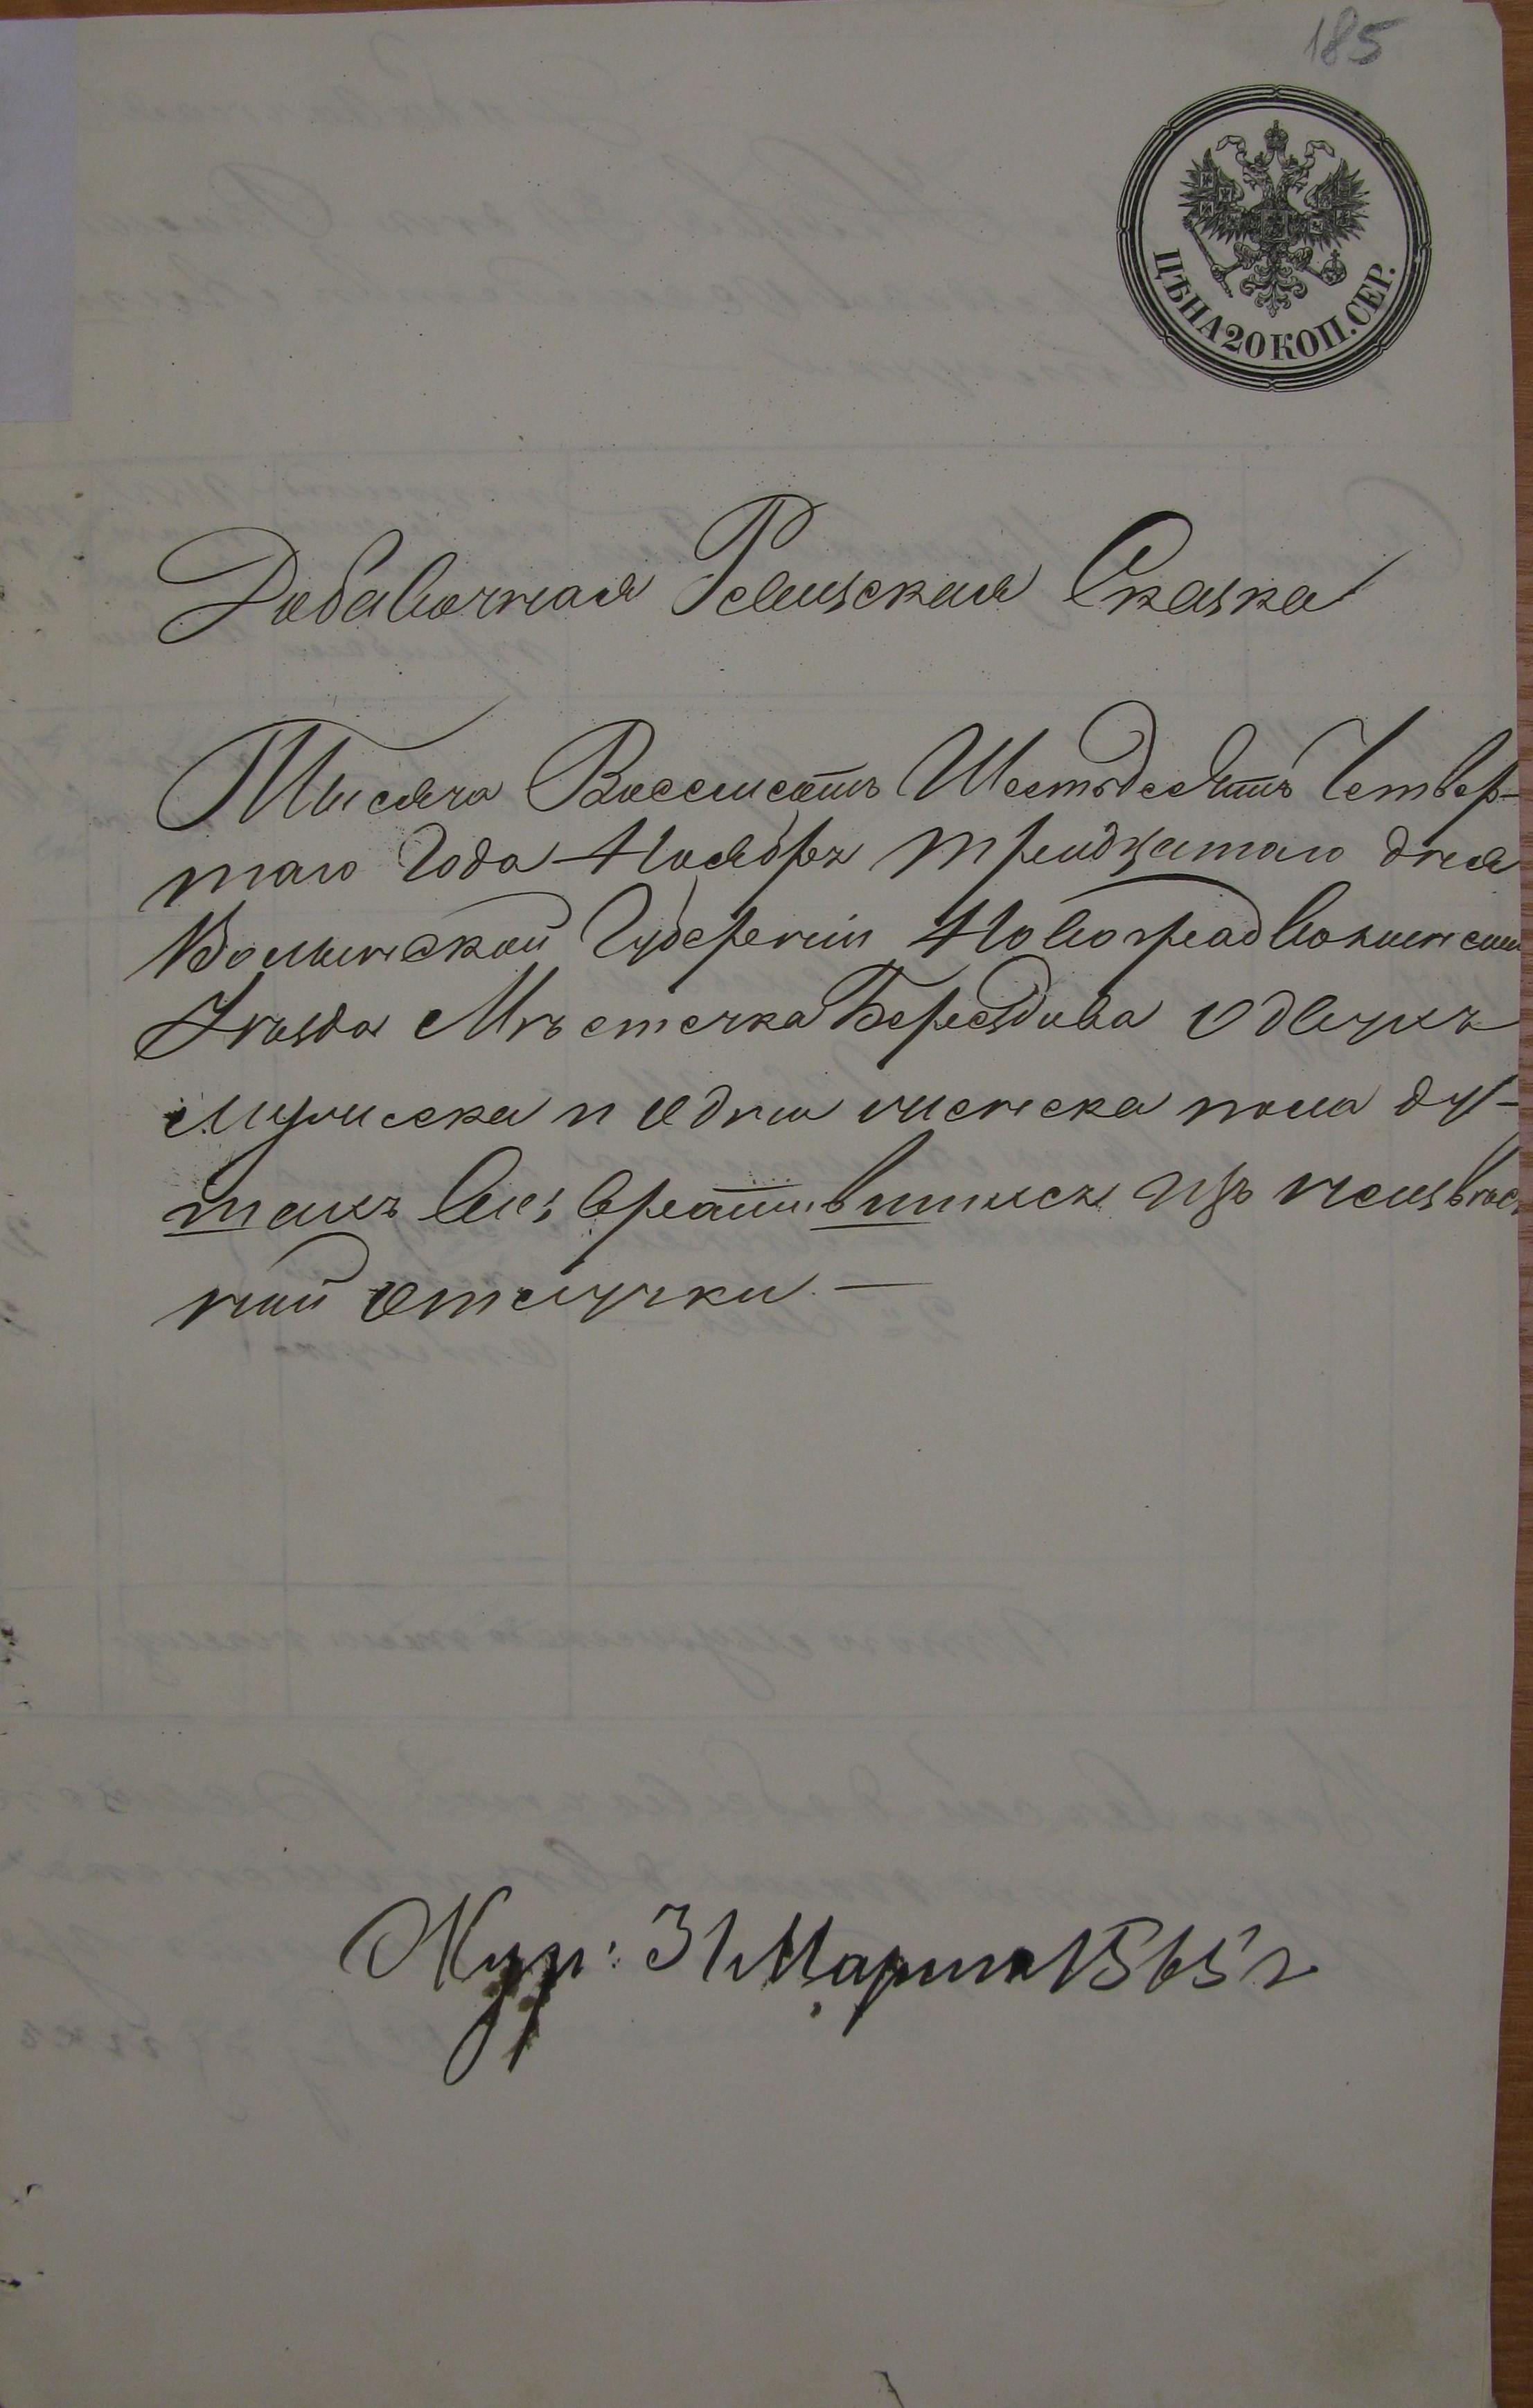 185
ЦѢНА 20 КОП. СЕР.
Добавочная Ревизская Сказка
Тысяча Восемсотъ Шестьдесятъ Четвер-
таго Года Ноября тридцатаго дня
Волынской Губерніи Новоградволынскаго
Уѣзда Мѣстечка Берездова О двухъ
мужеска и Одной женска пола ду-
шахъ возвратившихся изъ неизвѣст
ной Отлучки. —
Жур: 31 Марта 1865 г